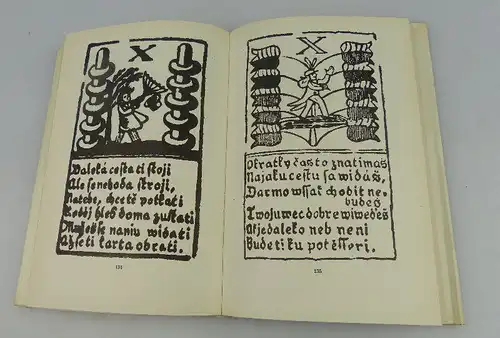 X
Daleká cesta ti stogi
Ale nehoda stroji,
na tebe, chcetě potkati
doma zustati
widati
Ažseti karta obrati.
131
X
Okratky často znatimaš
Najaku cestu sa widáš,
Darmo wssak chobit ne-
budeš
Twoju wec dobre wiwedeš
Akje daleko neb neni
Budeti ku potěsseri.
135